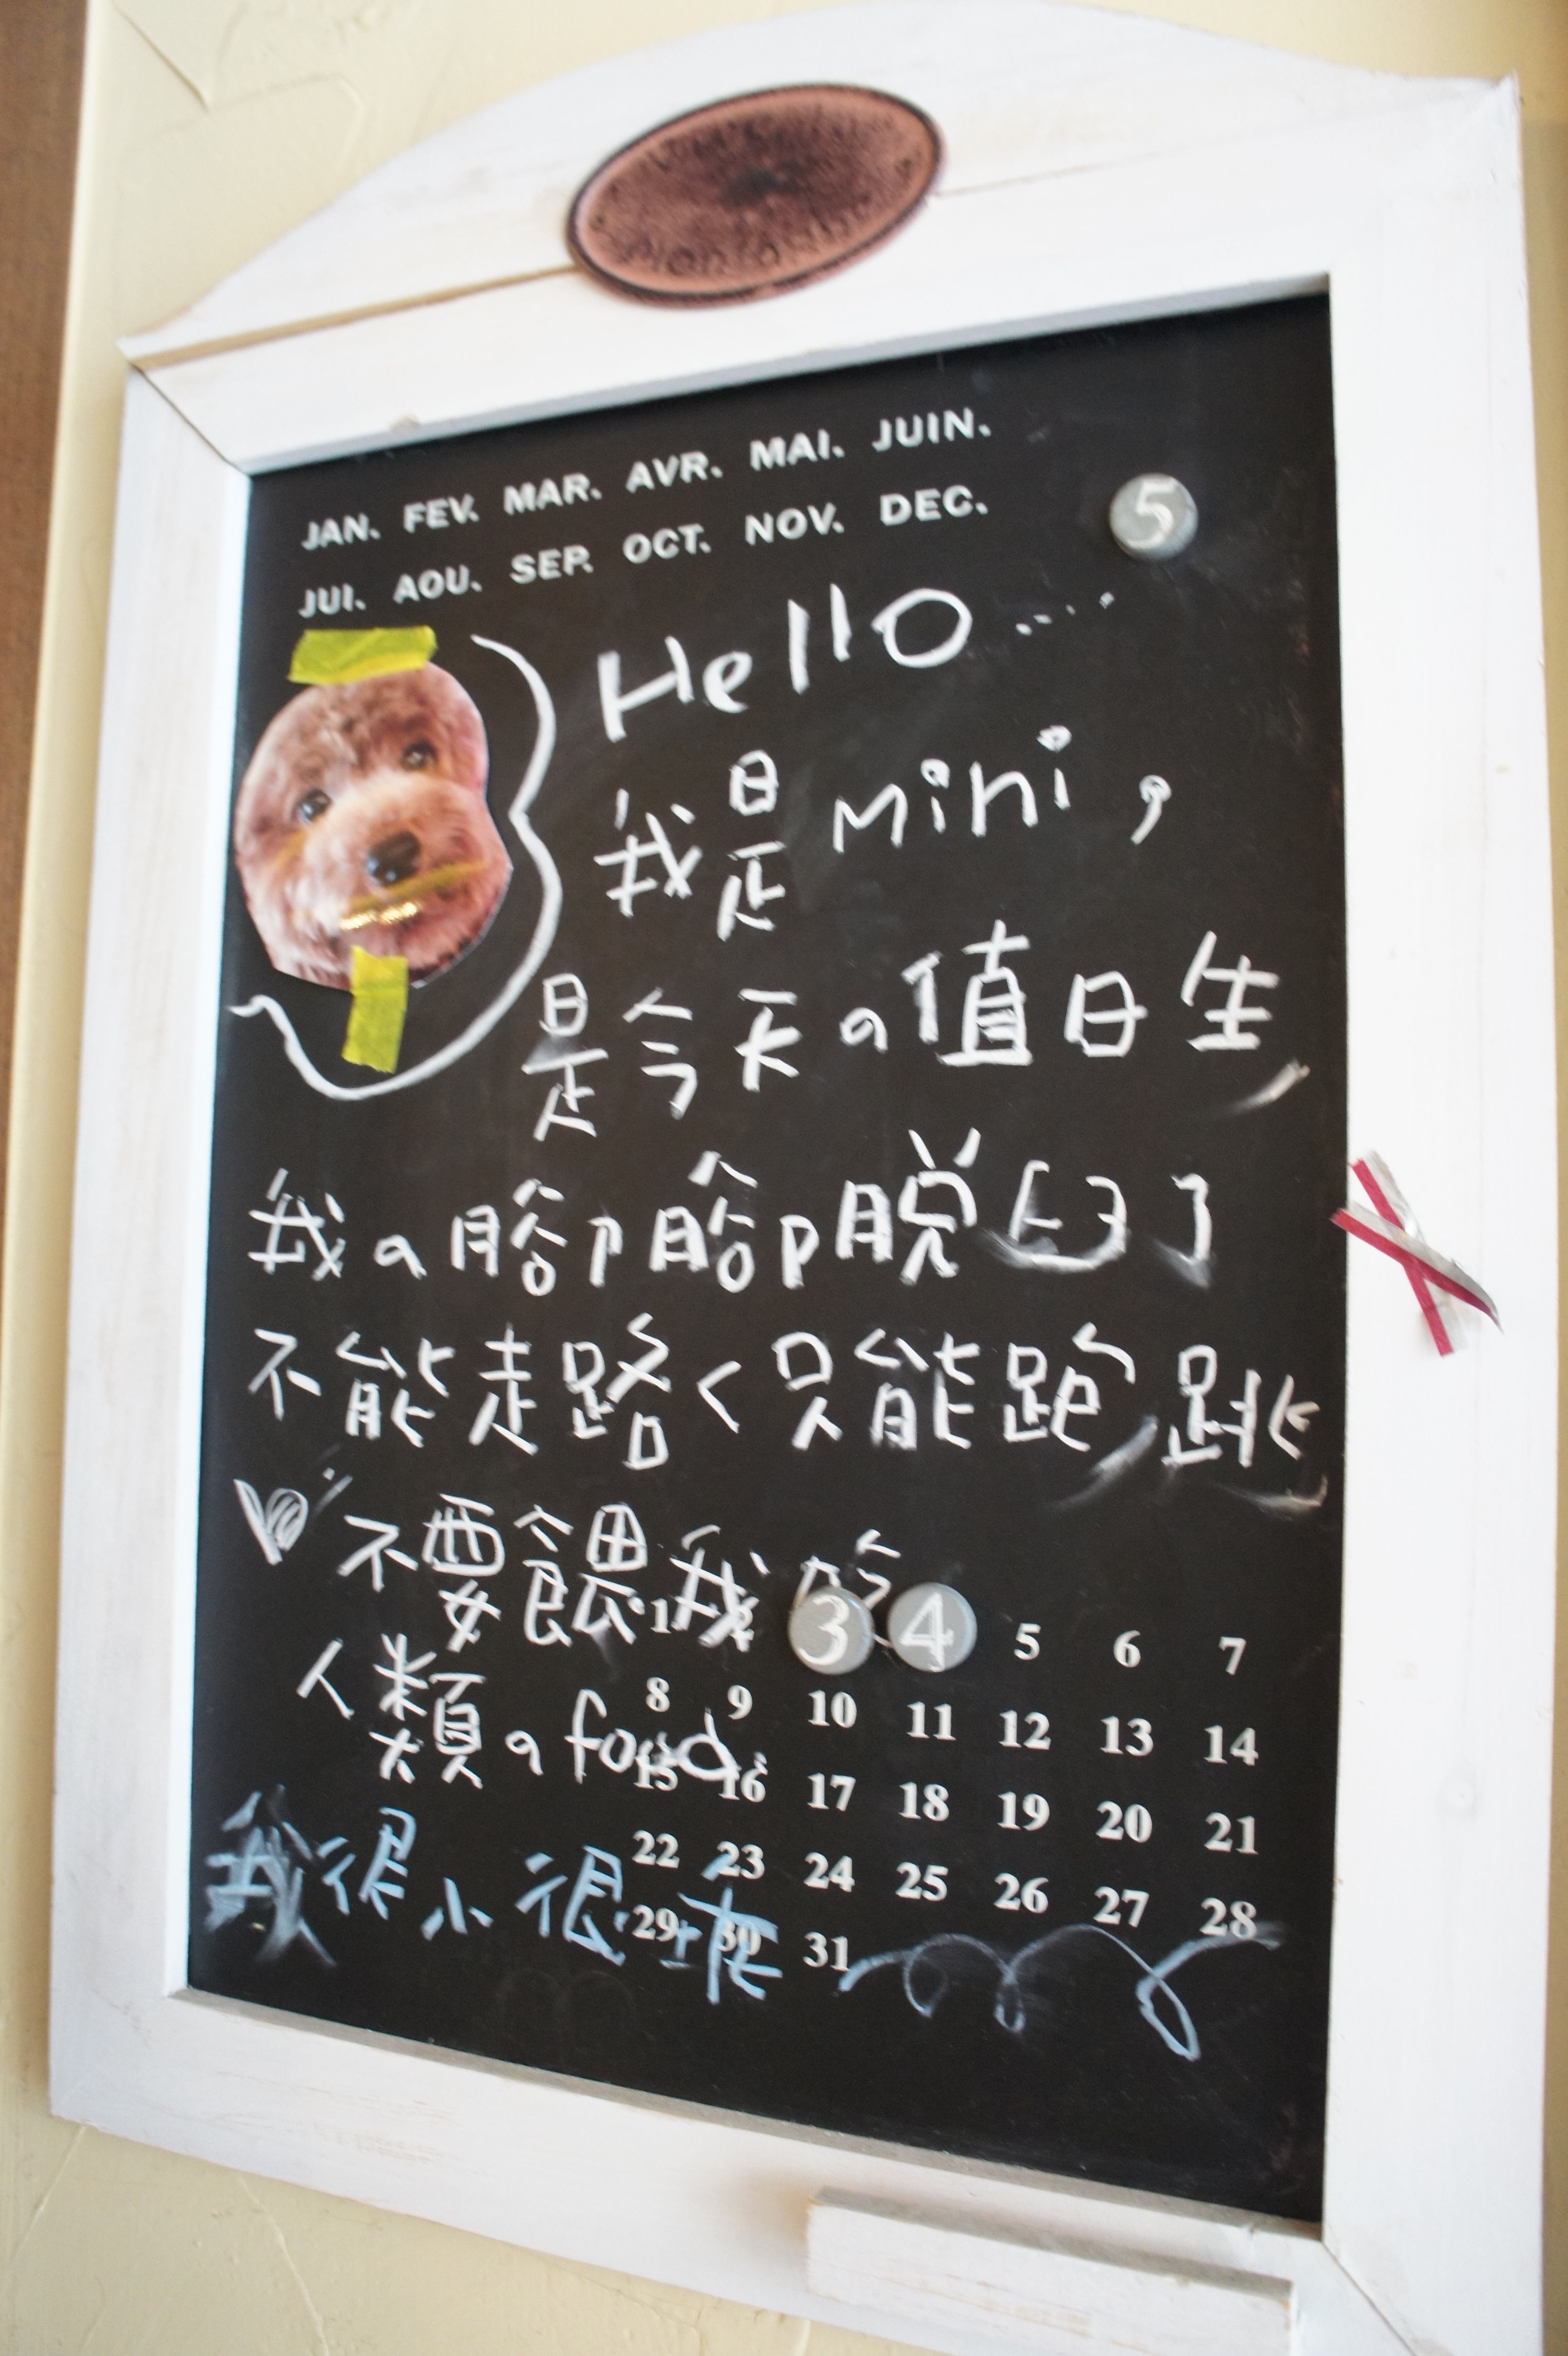 JAN. FEV. MAR. AVR. MAI. JUIN.
JUI. AOU. SEP. OCT. NOV. DEC.
5
Hello...
我是mini，
是今天の值日生
我の腳腳脫臼了
不能走路く只能跑跳
不要餵我吃
人類のfood.
我很小很
1 2 3 4 5 6 7
8 9 10 11 12 13 14
15 16 17 18 19 20 21
22 23 24 25 26 27 28
29 30 31